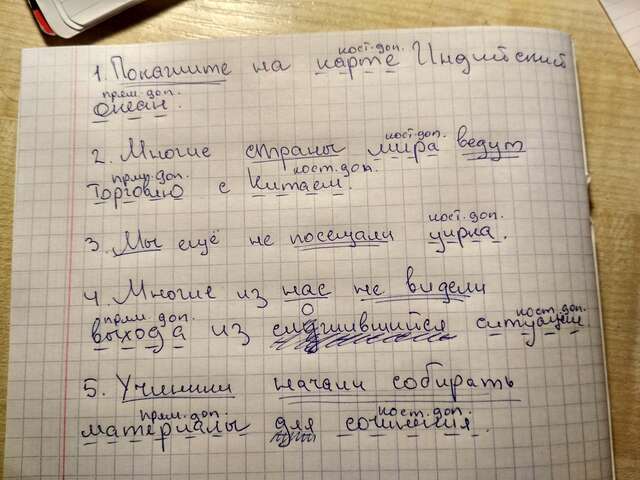 кост. доп.
1. Покажите на карте Индийский
прям. доп.
океан.
кост. доп.
2. Многие страны мира ведут
прям. доп. кост. доп.
торговлю с Китаем.
кост. доп.
3. Мы ещё не посещали цирка.
4. Многие из нас не видели
прям. доп. О кост. доп.
выхода из сложившийся ситуации.
5. Ученики начали собирать
прям. доп. кост. доп.
материалы для сочинения.